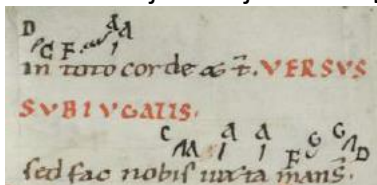 D C F A A
in toto corde & t̄. VERSVS
SVBIVGATIS.
C A A F G G D
sed fac nobis iuxta mans̄.